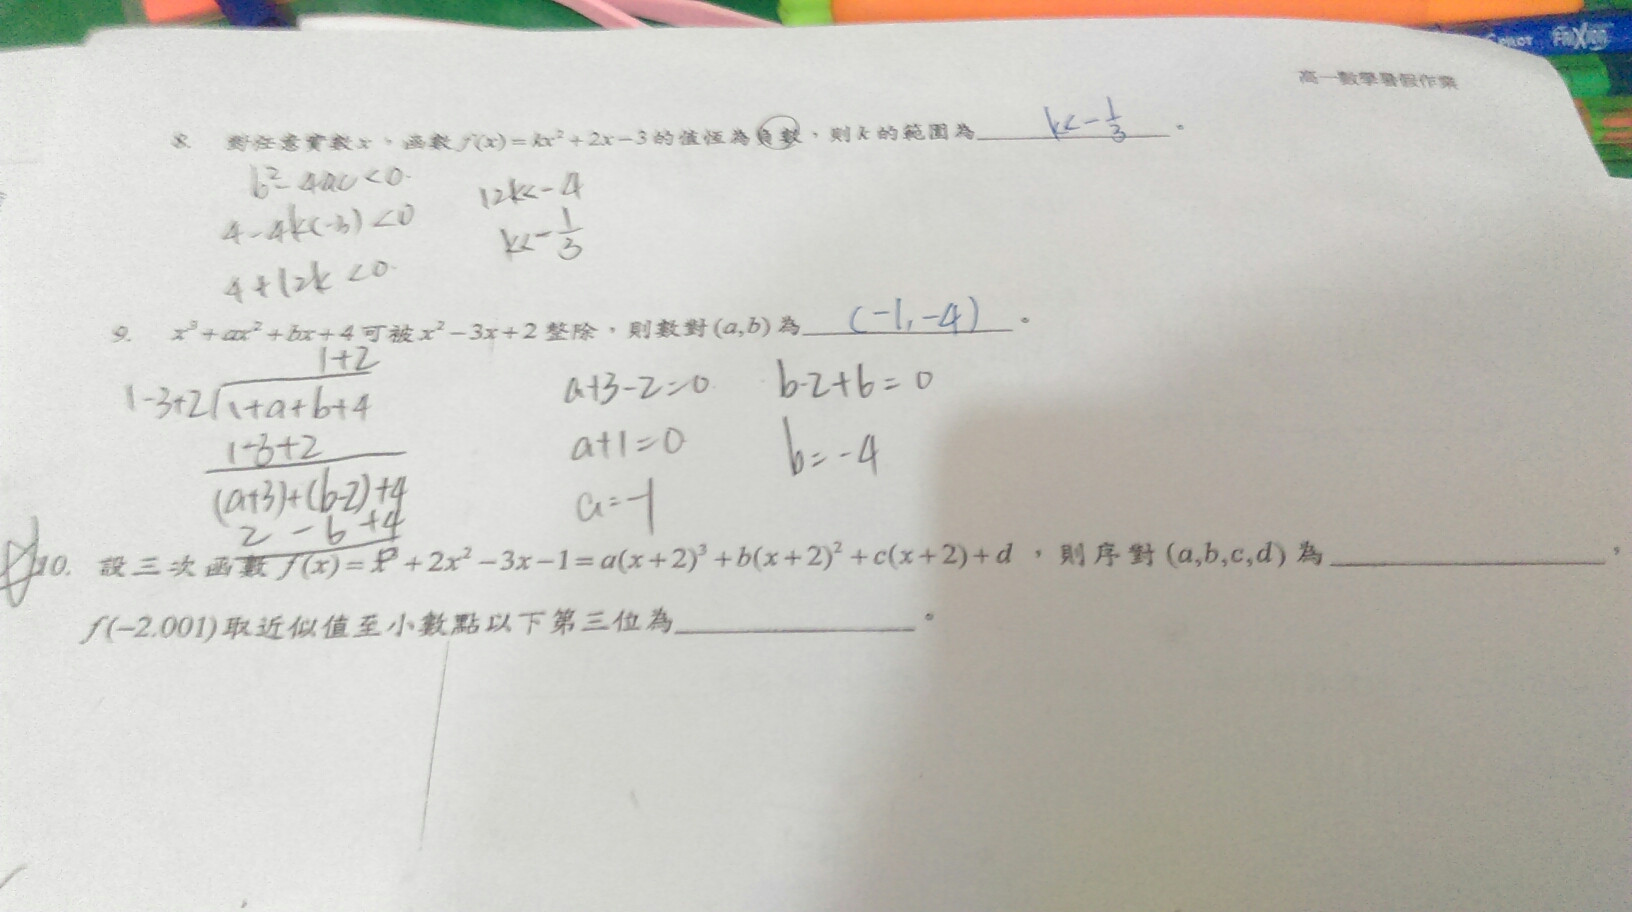 PILOT FRIXION
高一數學暑假作業
8. 對任意實數 x,函數 f(x)=kx²+2x-3 的值恆為負數,則 k 的範圍為 k<-1/3 。
b²-4ac<0
12k<-4
4-4k(-3)<0
k<-1/3
4+12k<0
9. x³+ax²+bx+4 可被 x²-3x+2 整除,則數對 (a,b) 為 (-1,-4) 。
1+2
1-3+2 1+a+b+4
a+3-2=0
b-2+6=0
1-3+2
a+1=0
b=-4
(a+3)+(b-2)+4
a=-1
2-6+4
10. 設三次函數 f(x)=x³+2x²-3x-1=a(x+2)³+b(x+2)²+c(x+2)+d,則序對 (a,b,c,d) 為 ,
f(-2.001) 取近似值至小數點以下第三位為 。